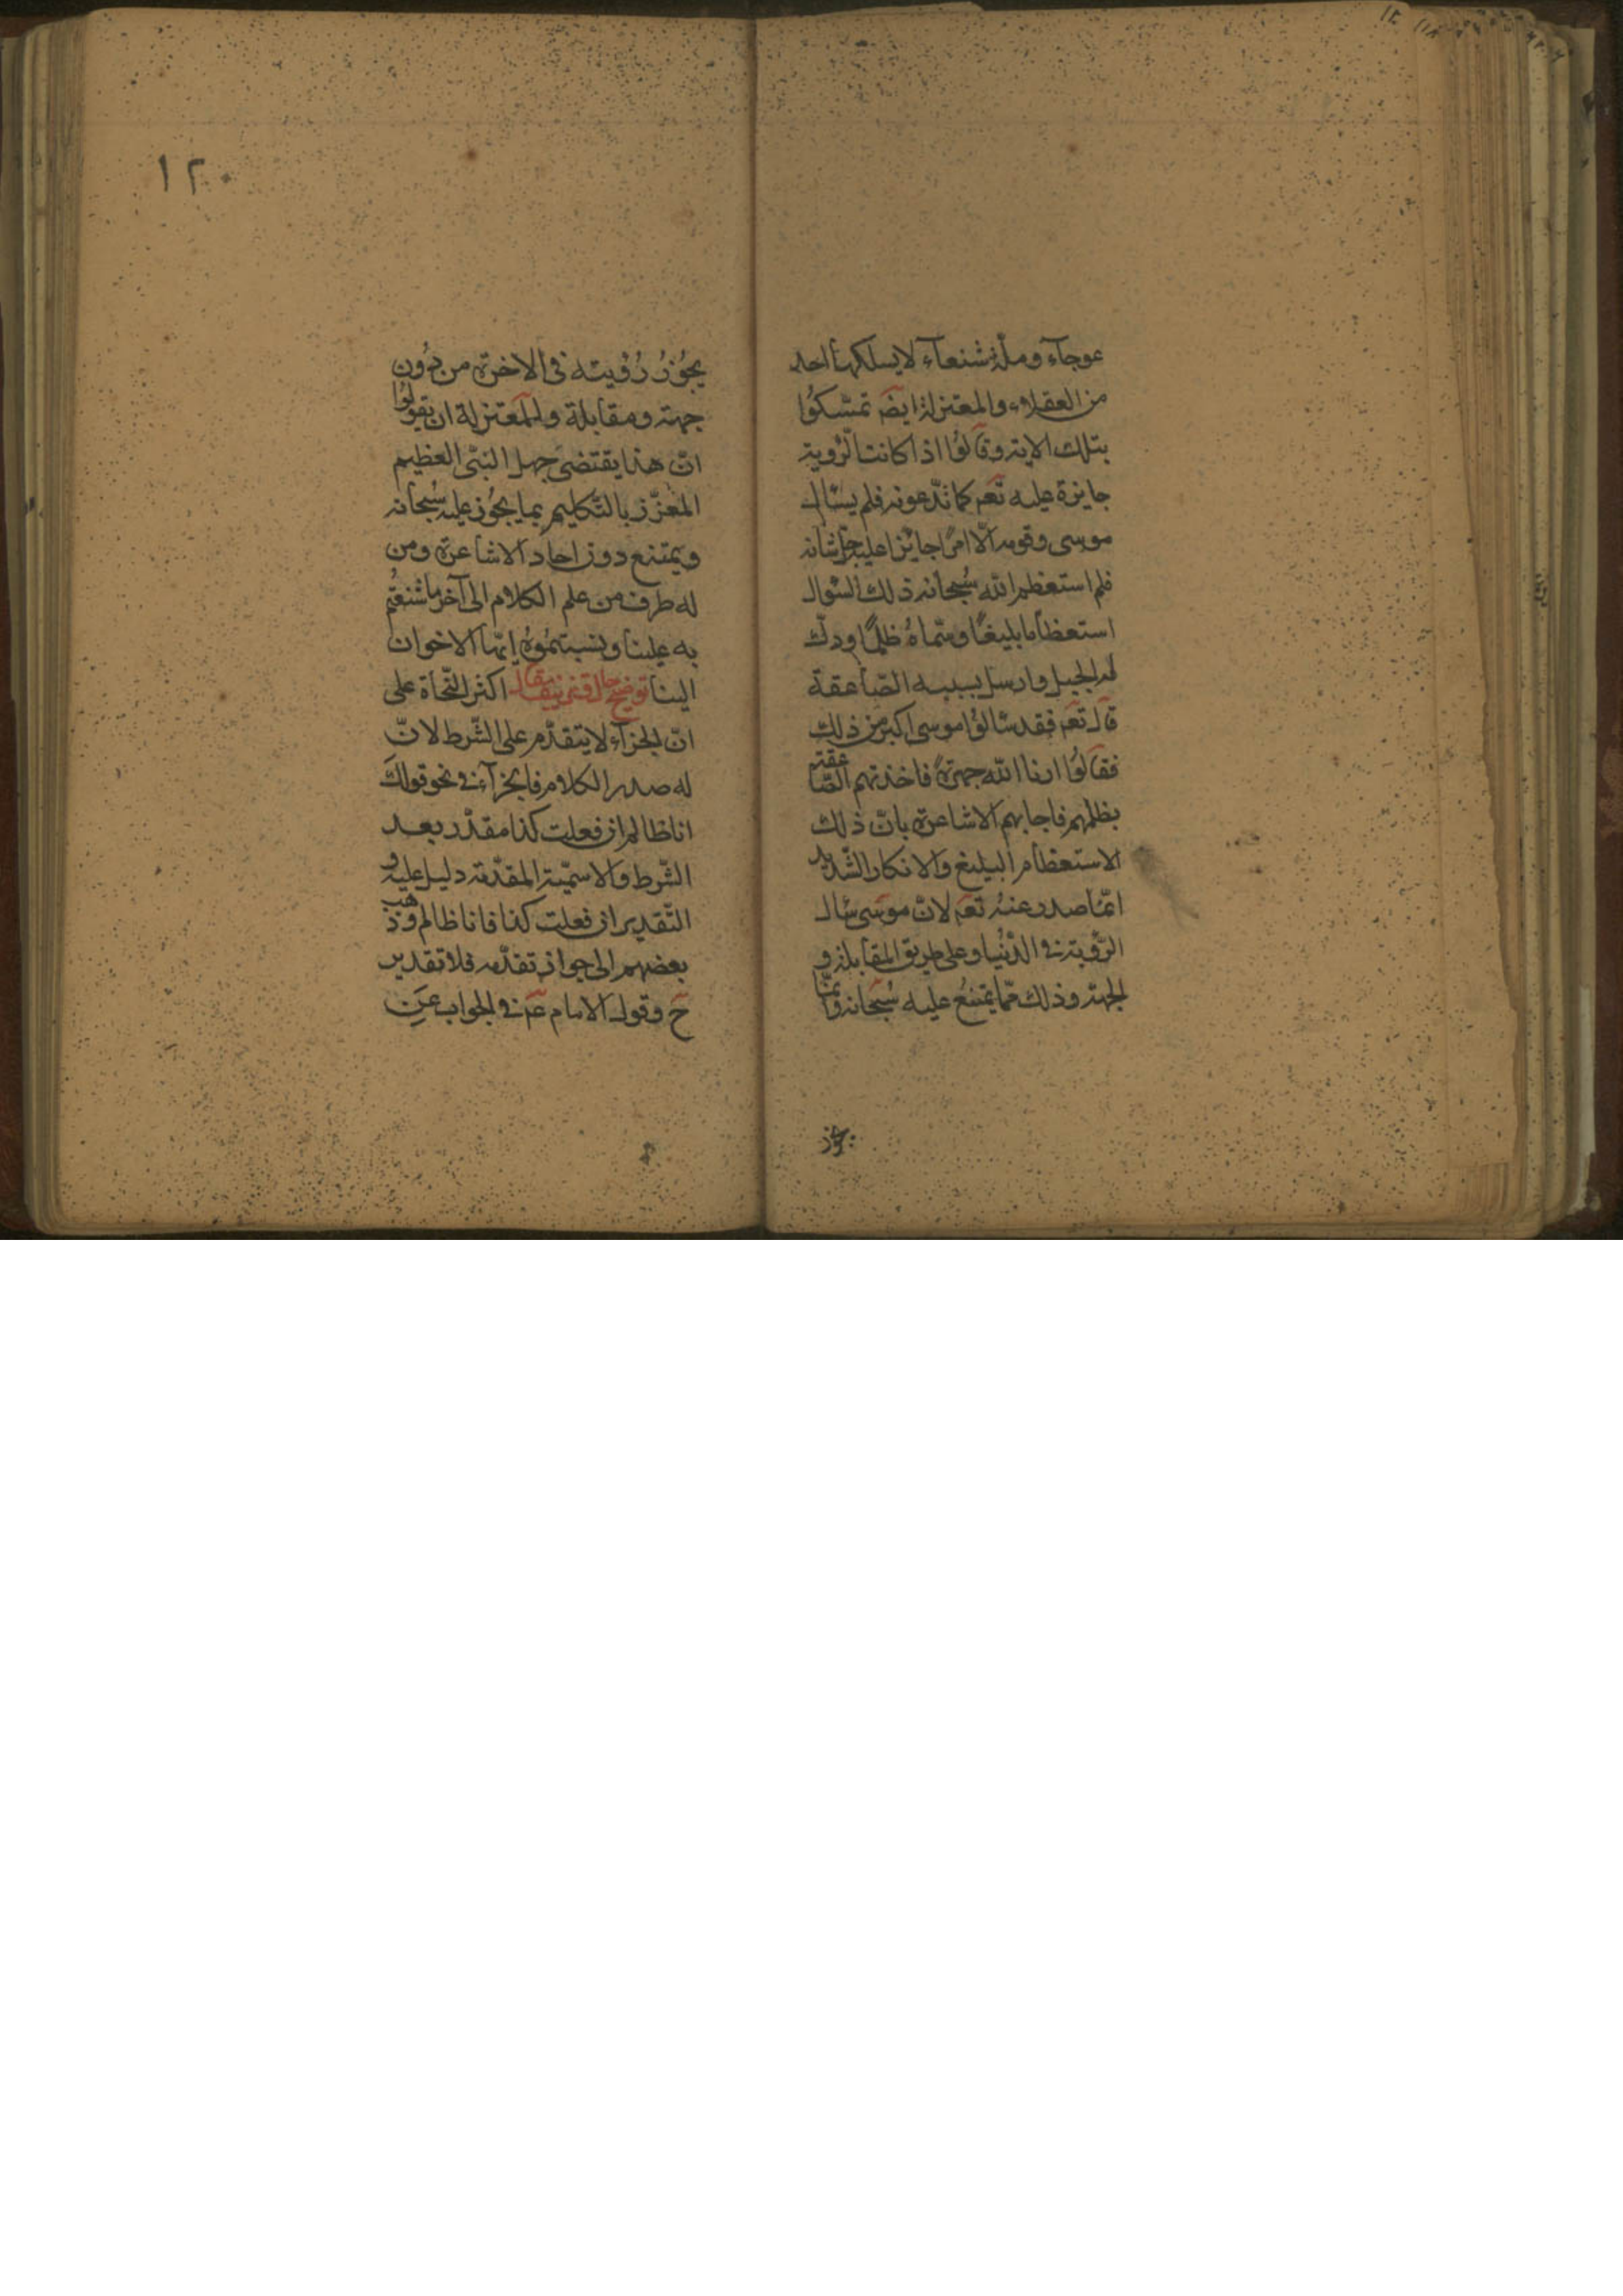 عوجآء وملّة شنعآء لا يسلكها احد
من العقلاء والمعتزلة ايضَ تمسّكوُا
بتلك الاية وقالوُا اذا كانت الرّؤية
جايزة عليه تعَم كما تدّعونه فلم يسئال
موسى وقومه الّا امرًا جايزا عليه جلّ شانه
فلم استعظم الله سُبحانه ذلك السّوال
استعظاما بليغًا وسمّاهُ ظلمًا ودكّ
له الجبل وارسل بسببه الصّاعقة
قال تعَم فقد سئالوُا موسى اكبر من ذلك
فقالوُا ارنا الله جهرةً فاخذتهم الصّاعقة
بظلمهم فاجابهم الاشاعرة بانّ ذلك
الاستعظام البليغ والانكار الشّديد
انمّا صدر عنهُ تعَم لانّ موسى سئال
الرّؤية فى الدّنُيا وعلى طريق المقابلة و
الجهة وذلك ممّا يمتنعُ عليه سُبحانه وانمّا
يجوز
١٢٠
يجُوزُ رُؤيته فى الاخرة من دُون
جهة ومقابلة وللمعتزلة ان يقولوُا
انّ هذا يقتضى جهل النبّى العظيم
المُعزّز بالتّكليم بما يجُوز عليه سُبحانه
ويمتنع دون احاد الاشاعرة ومن
له طرف من علم الكلام الى آخر ما شنعتُم
به علينا ونسبتمُوهُ ايّها الاخوان
الينا توضيح حال وتزييف مقال اكثر النّحاة على
انّ الجزآء لا يتقدّم على الشّرط لانّ
له صدر الكلام فالجزآء فى نحو قولكَ
انا ظالم ان فعلت كذا مقدّر بعد
الشّرط والاسميّة المقدّمة دليل عليه و
التّقدير ان فعلت كذا فانا ظالم وذهب
بعضهم الى جواز تقدّمه فلا تقدير
حَ وقول الامام عَم فى الجواب عَنِ